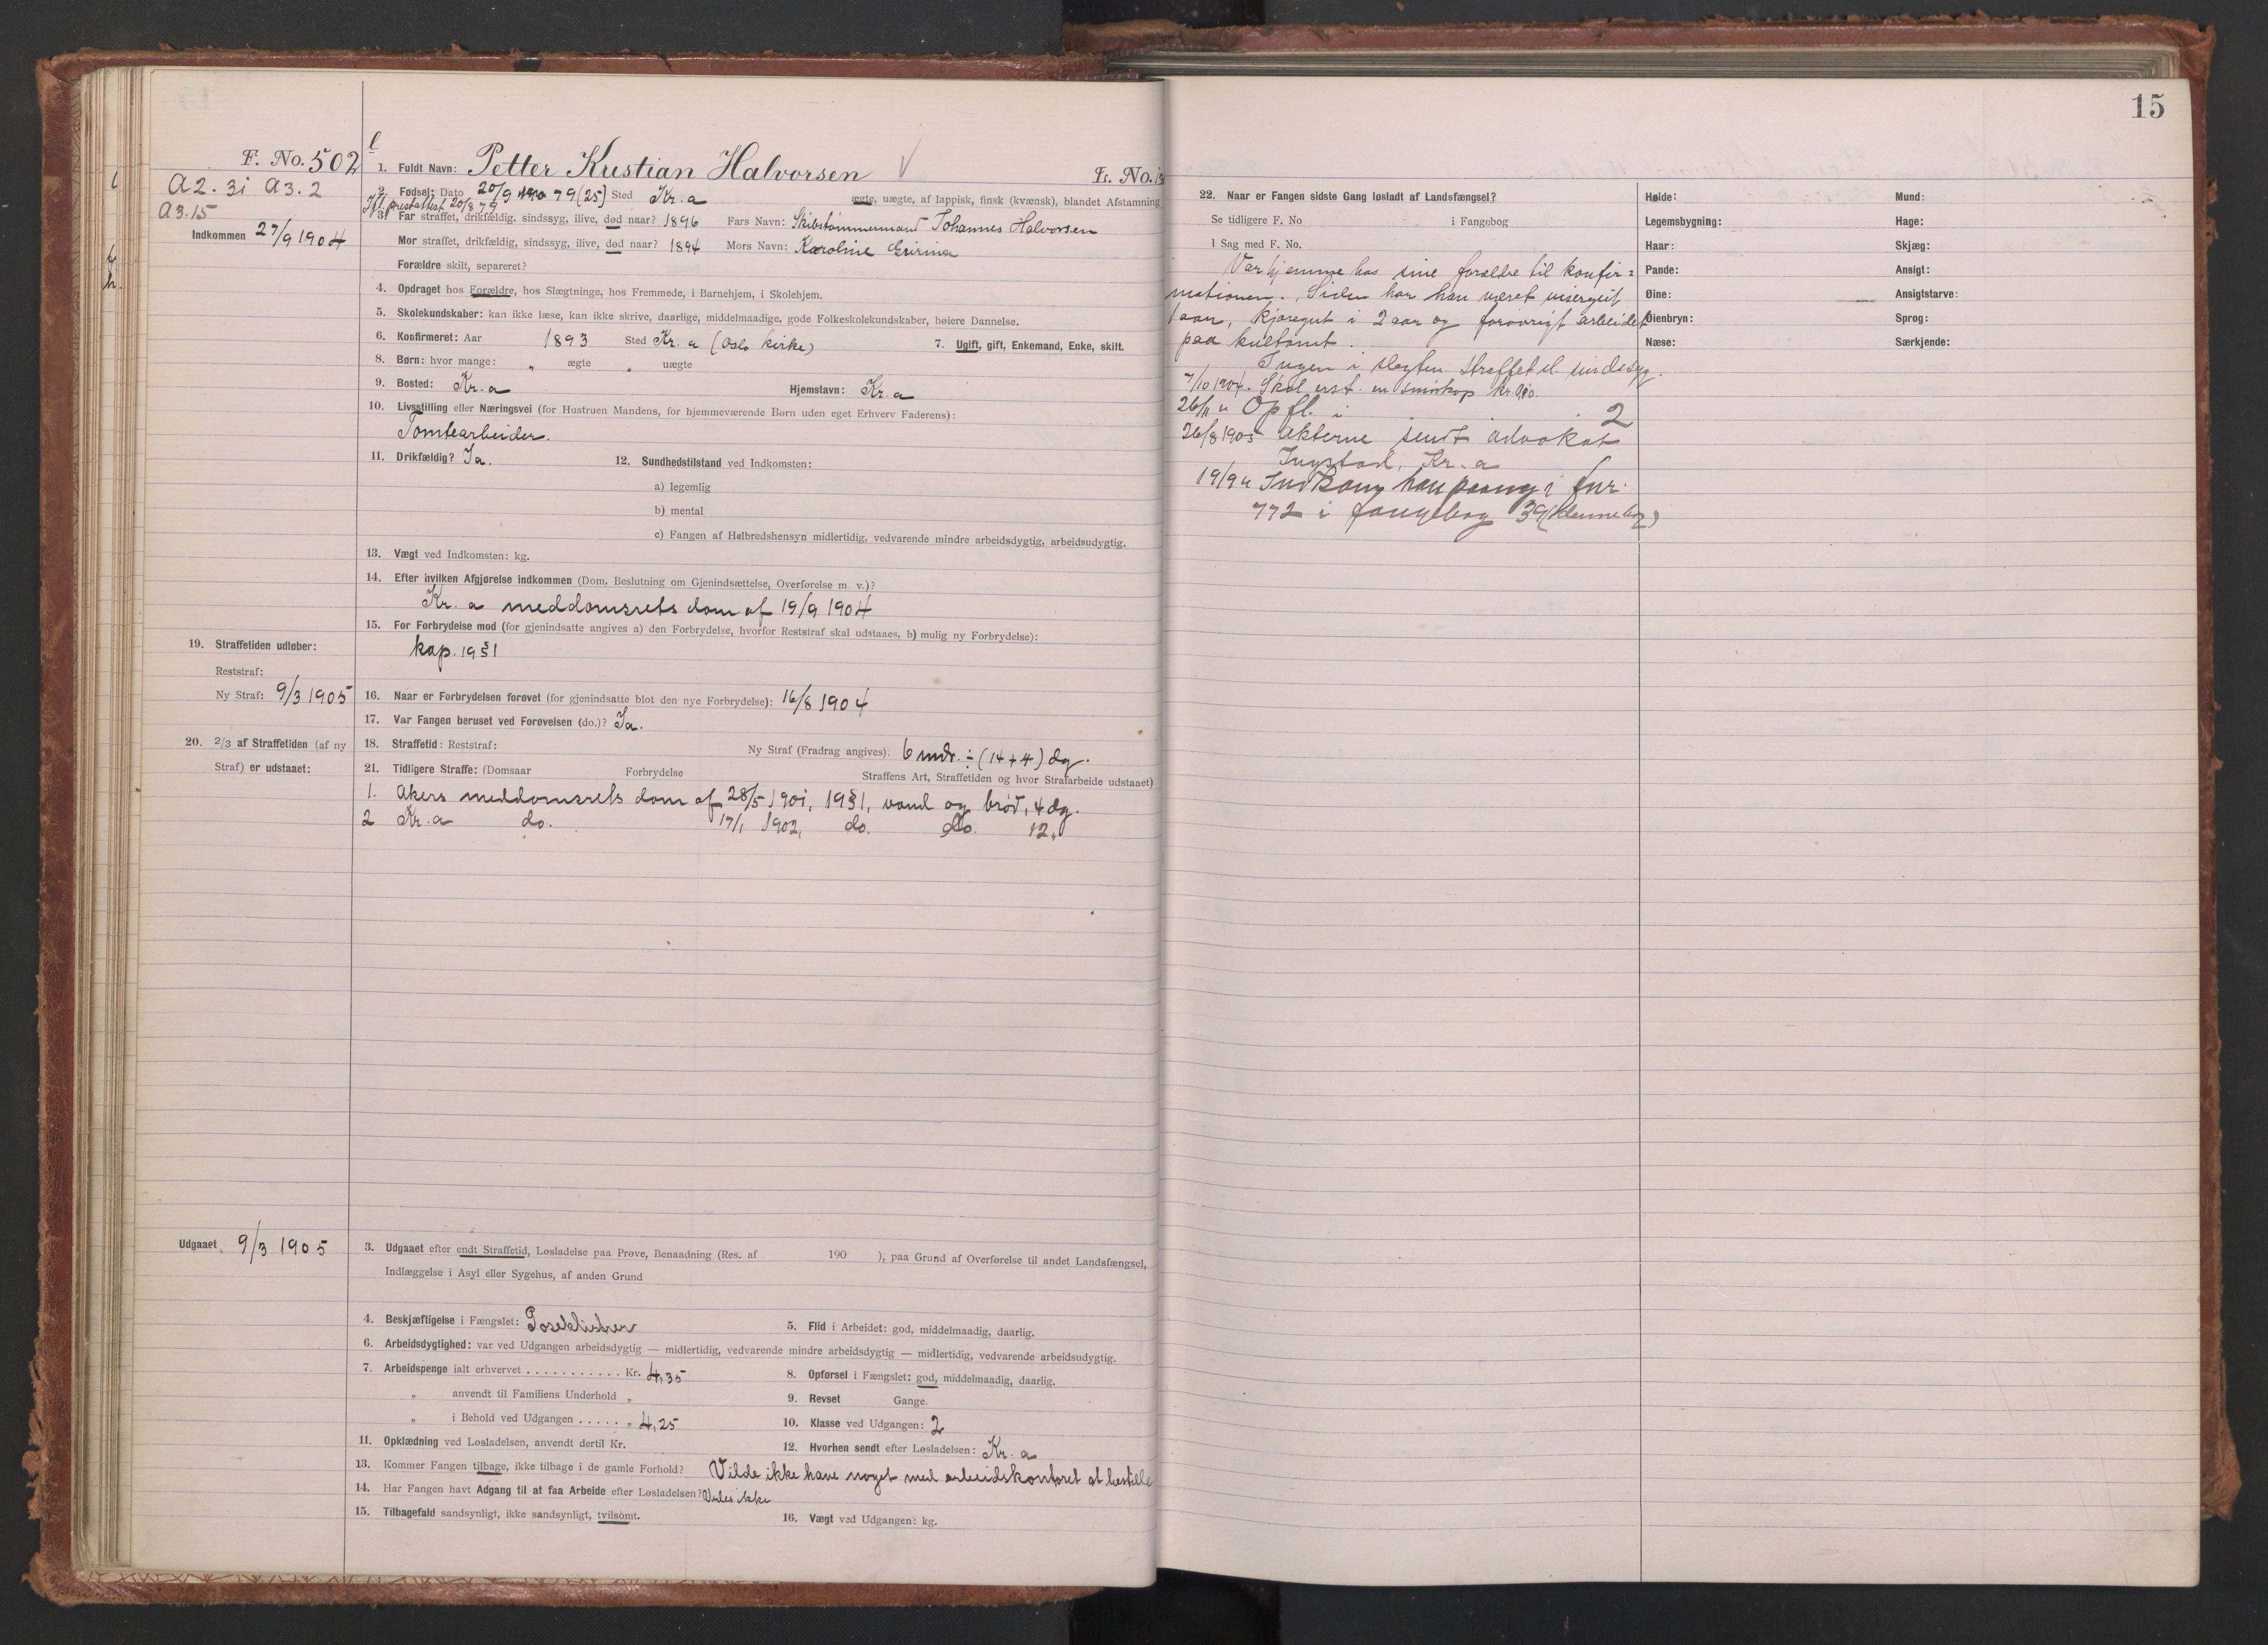 F. No. 502
A2. 31 A3. 2
A3. 15
Indkommen 27/9 1904
1. Fuldt Navn: Petter Kristian Halvorsen
L. No.
2. Fødsel: Dato 20/9 79 (25) Sted Kr.a ægte, uægte, af lappisk, finsk (kvænsk), blandet Afstamning
Ifl. prestattest 20/8 79
3. Far straffet, drikfældig, sindssyg, ilive, død naar? 1896 Fars Navn: Skibstømmermand Johannes Halvorsen
Mor straffet, drikfældig, sindssyg, ilive, død naar? 1894 Mors Navn: Karoline
Forældre skilt, separeret?
4. Opdraget hos Forældre, hos Slægtninge, hos Fremmede, i Barnehjem, i Skolehjem.
5. Skolekundskaber: kan ikke læse, kan ikke skrive, daarlige, middelmaadige, gode Folkeskolekundskaber, høiere Dannelse.
6. Konfirmeret: Aar 1893 Sted Kr.a (Oslo kirke) 7. Ugift, gift, Enkemand, Enke, skilt.
8. Børn: hvor mange: " ægte " uægte
9. Bosted: Kr.a Hjemstavn: Kr.a
10. Livsstilling eller Næringsvei (for Hustruen Mandens, for hjemmeværende Børn uden eget Erhverv Faderens):
Tomtearbeider.
11. Drikfældig? Ja. 12. Sundhedstilstand ved Indkomsten:
a) legemlig
b) mental
c) Fangen af Helbredshensyn midlertidig, vedvarende mindre arbeidsdygtig, arbeidsudygtig.
13. Vægt ved Indkomsten: kg.
14. Efter hvilken Afgjørelse indkommen (Dom, Beslutning om Gjenindsættelse, Overførelse m. v.)?
Kr.a meddomsrets dom af 19/9 1904
15. For Forbrydelse mod (for gjenindsatte angives a) den Forbrydelse, hvorfor Reststraf skal udstaaes, b) mulig ny Forbrydelse):
kap. 19 § 1
19. Straffetiden udløber:
Reststraf:
Ny Straf: 9/3 1905
16. Naar er Forbrydelsen forøvet (for gjenindsatte blot den nye Forbrydelse): 16/8 1904
17. Var Fangen beruset ved Forøvelsen (do.)? Ja.
20. 2/3 af Straffetiden (af ny
Straf) er udstaaet:
18. Straffetid: Reststraf: Ny Straf (Fradrag angives): 6 mdr. ÷ (14 + 4) dg.
21. Tidligere Straffe: (Domsaar Forbrydelse Straffens Art, Straffetiden og hvor Strafarbeide udstaaet)
1. Akers meddomsrets dom af 28/5 1901, 19 § 1, vand og brød, 4 dg.
2 Kr.a do. 17/1 1902, do. do. 12 "
Udgaaet 9/3 1905
3. Udgaaet efter endt Straffetid, Løsladelse paa Prøve, Benaadning (Res. af 190 ), paa Grund af Overførelse til andet Landsfængsel,
Indlæggelse i Asyl eller Sygehus, af anden Grund
4. Beskjæftigelse i Fængslet: Poseklistrer 5. Flid i Arbeidet: god, middelmaadig, daarlig.
6. Arbeidsdygtighed: var ved Udgangen arbeidsdygtig — midlertidig, vedvarende mindre arbeidsdygtig — midlertidig, vedvarende arbeidsudygtig.
7. Arbeidspenge ialt erhvervet . . . . . . . . . . . Kr. 4,35 8. Opførsel i Fængslet: god, middelmaadig, daarlig.
" anvendt til Familiens Underhold " 9. Revset Gange.
" i Behold ved Udgangen . . . . . " 4,25 10. Klasse ved Udgangen: 2
11. Opklædning ved Løsladelsen, anvendt dertil Kr. 12. Hvorhen sendt efter Løsladelsen: Kr.a
13. Kommer Fangen tilbage, ikke tilbage i de gamle Forhold? Vilde ikke have noget med arbeidskontoret at bestille
14. Har Fangen havt Adgang til at faa Arbeide efter Løsladelsen? Vides ikke
15. Tilbagefald sandsynligt, ikke sandsynligt, tvilsomt. 16. Vægt ved Udgangen: kg.
15
22. Naar er Fangen sidste Gang løsladt af Landsfængsel?
Se tidligere F. No i Fangebog
I Sag med F. No.
Var hjemme hos sine forældre til konfir=
mationen. Siden har han været visergut
1 aar, kjøregut i 2 aar og forøvrigt arbeidet
paa
Ingen i slegten straffet el. sindssyg.
7/10 1904. Skal erst. en smørkop kr.
26/11 " Opfl. i 2
26/8 1905 Akterne sendt advokat
Kr.a
19/9 " Indkom han paany i fnr.
772 i fangebog 39 (denne bog)
Høide:
Legemsbygning:
Haar:
Pande:
Øine:
Øienbryn:
Næse:
Mund:
Hage:
Skjæg:
Ansigt:
Ansigtsfarve:
Sprog:
Særkjende: